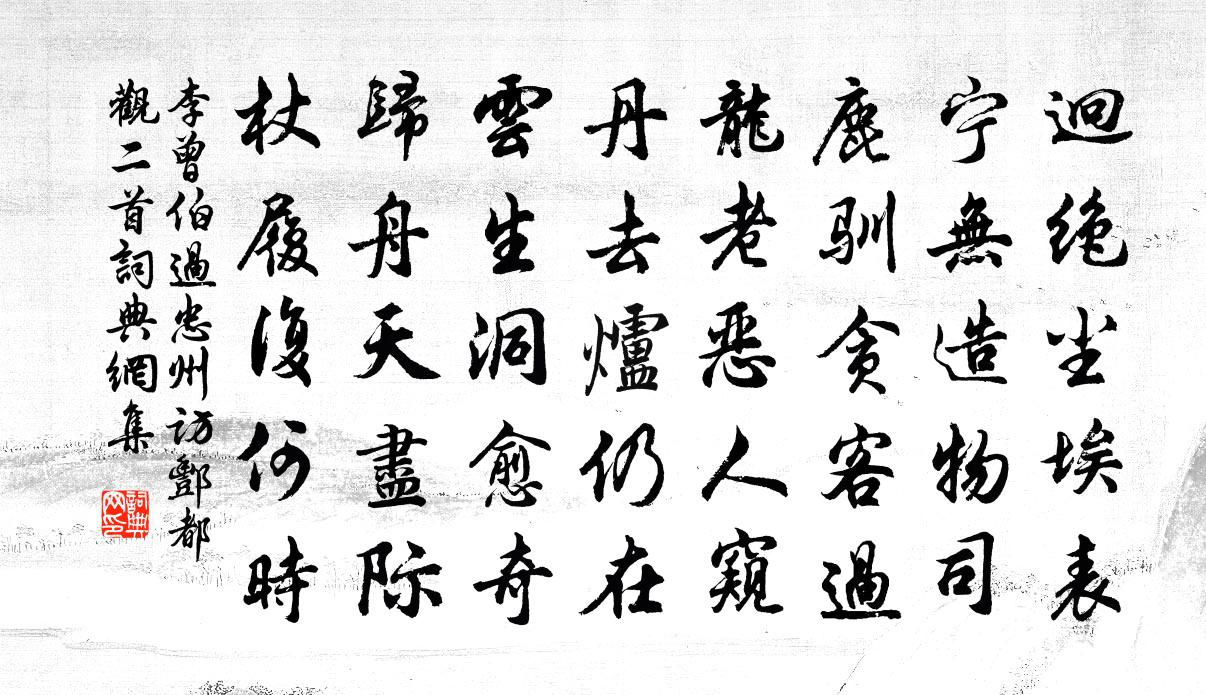 迥絶尘埃表
宁無造物司
鹿馴貪客過
龍老惡人窺
丹去爐仍在
雲生洞愈奇
歸舟天盡際
杖履復何時
李曾伯過忠州訪酆都
觀二首詞典網集
詞典
网印